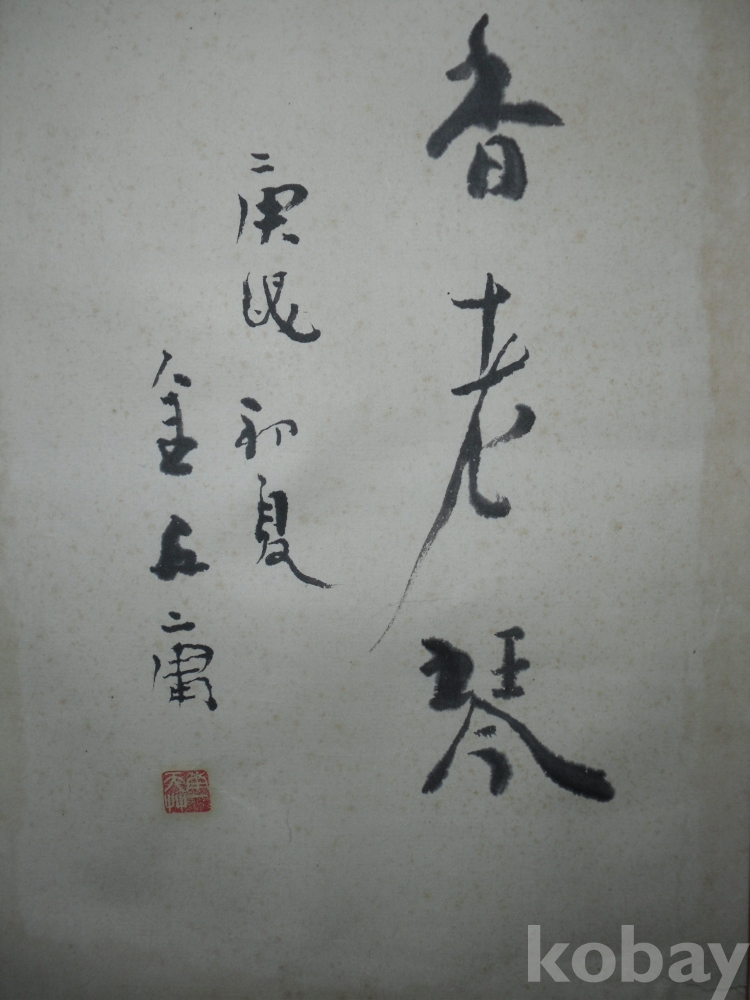 香老琴
庚民初夏
金丘庸
kobay